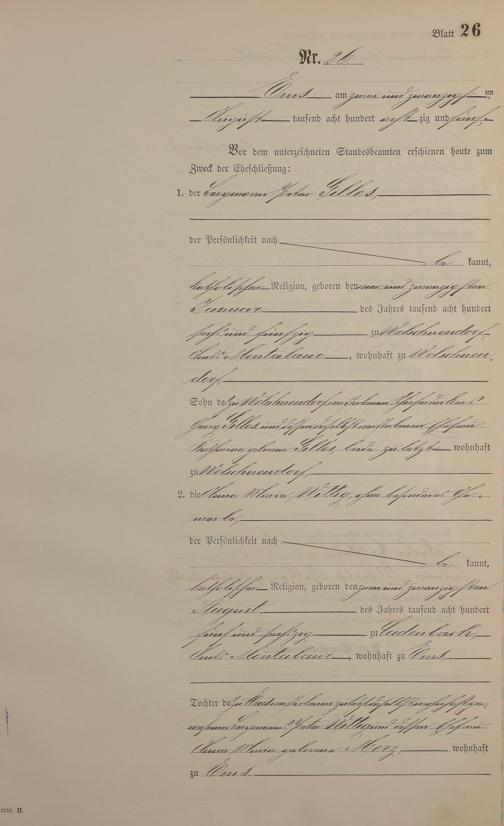 Blatt 26
Nr. 26.
Ems am zwei und zwanzigsten
August tausend acht hundert acht zig und fünf
Vor dem unterzeichneten Standesbeamten erschienen heute zum
Zweck der Eheschließung:
1. der Bergmann Peter Gelles,
der Persönlichkeit nach
be kannt,
katholischer Religion, geboren den ein und zwanzigsten
Januar des Jahres tausend acht hundert
sechs und fünfzig zu Welschneudorf,
Amts Montabaur, wohnhaft zu Welschneu-
dorf,
Sohn des zu Welschneudorf verstorbenen
Georg Gelles und dessen daselbst verstorbenen Ehefrau
geborene Gelles, beide zuletzt wohnhaft
zu Welschneudorf,
2. die Anna Maria Wittig, ohne besonderes Ge-
werbe,
der Persönlichkeit nach
be kannt,
katholischer Religion, geboren den zwei und zwanzigsten
August des Jahres tausend acht hundert
fünf und sechzig zu Cadenbach,
Amts Montabaur, wohnhaft zu Ems
Tochter des zu Ems verstorbenen zuletzt daselbst wohnhaft ge-
wesenen Bergmanns Peter Wittig und dessen Ehefrau
Anna Maria geborene Merz, wohnhaft
zu Ems.